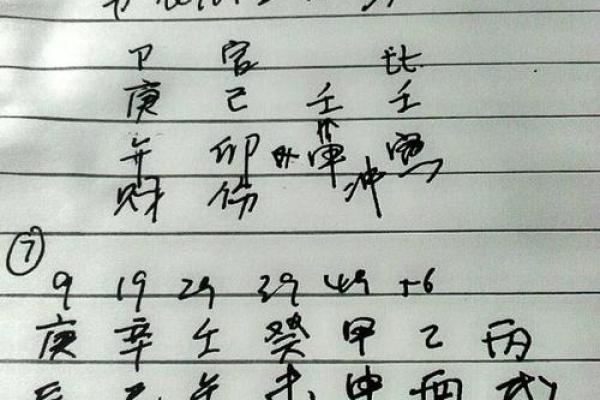 卩 官 比
庚 己 壬 壬
午 卯 申 寅
财 伤 冲
⑦
9 19 29 39 49 +6
庚 辛 壬 癸 甲 乙 丙
午 未 申 酉 戌